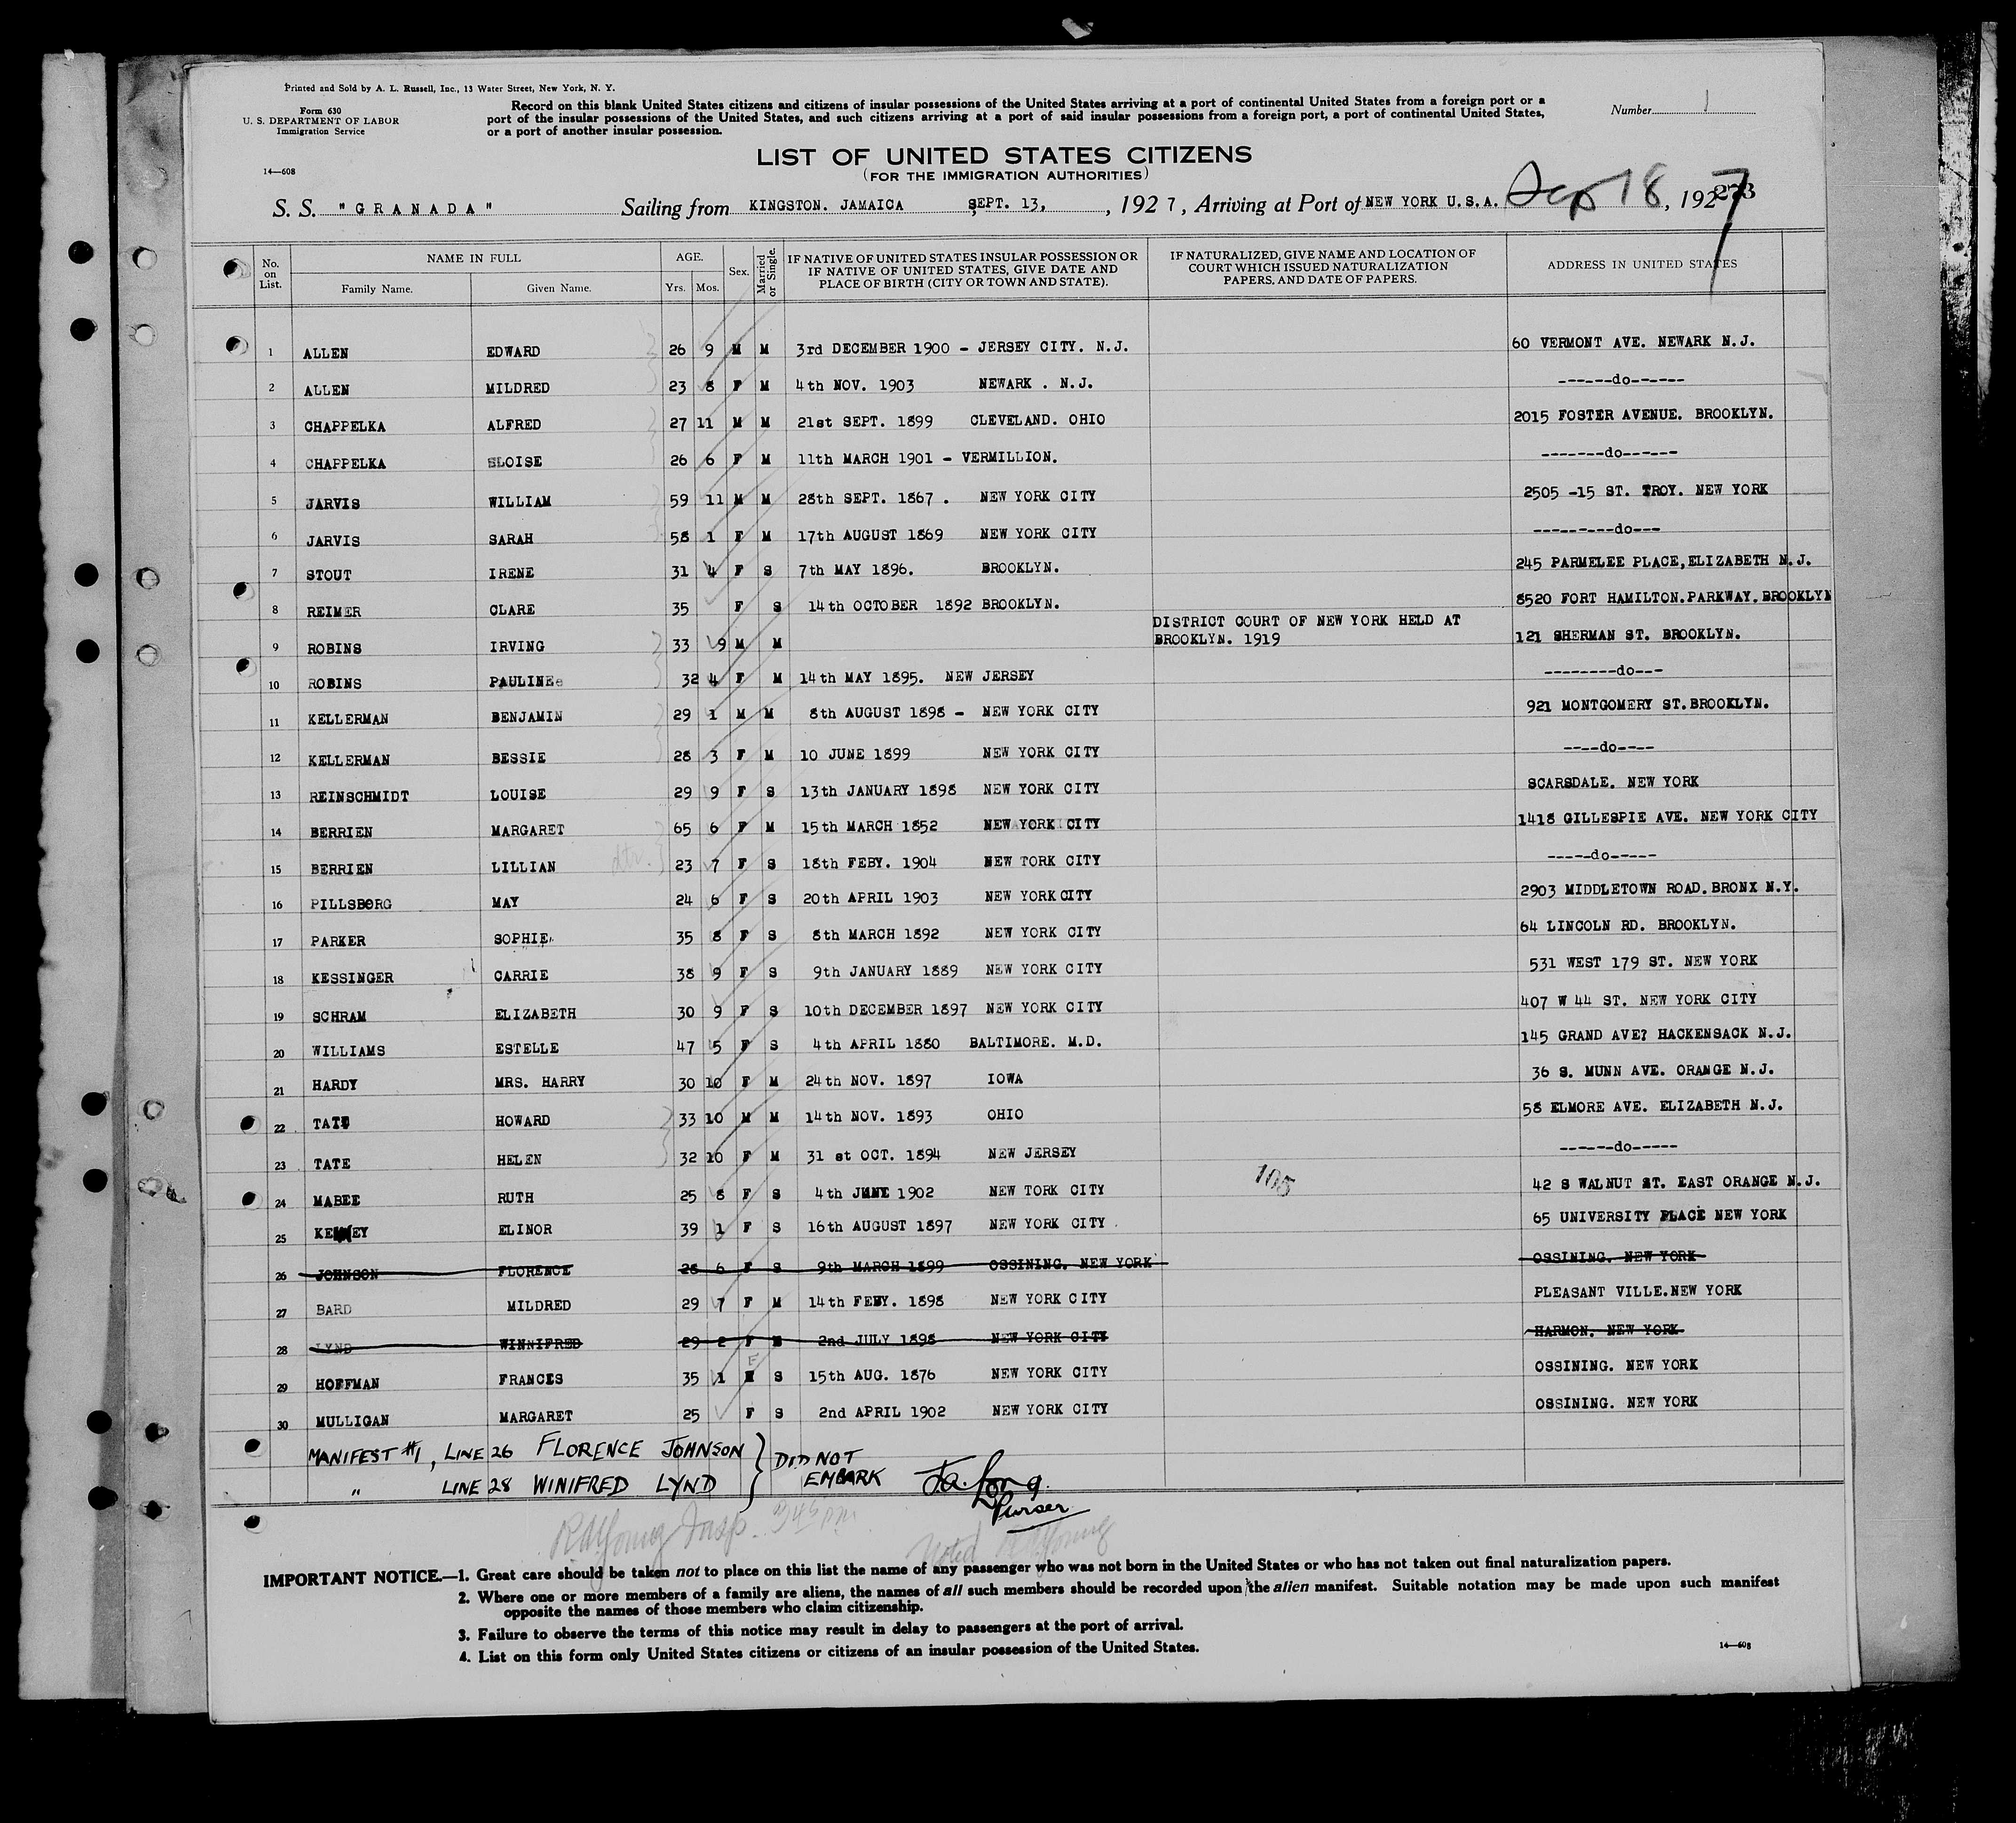 Printed and Sold by A. L. Russell, Inc., 13 Water Street, New York, N. Y.
Form 630
U. S. DEPARTMENT OF LABOR
Immigration Service
14—608
Record on this blank United States citizens and citizens of insular possessions of the United States arriving at a port of continental United States from a foreign port or a
port of the insular possessions of the United States, and such citizens arriving at a port of said insular possessions from a foreign port, a port of continental United States,
or a port of another insular possession.
Number 1
LIST OF UNITED STATES CITIZENS
(FOR THE IMMIGRATION AUTHORITIES)
S. S. "GRANADA" Sailing from KINGSTON. JAMAICA SEPT. 13, , 1927, Arriving at Port of NEW YORK U.S.A. Sep 18, 1927
273
No. on List. NAME IN FULL AGE. Sex. Married or Single. IF NATIVE OF UNITED STATES INSULAR POSSESSION OR IF NATIVE OF UNITED STATES, GIVE DATE AND PLACE OF BIRTH (CITY OR TOWN AND STATE). IF NATURALIZED, GIVE NAME AND LOCATION OF COURT WHICH ISSUED NATURALIZATION PAPERS, AND DATE OF PAPERS. ADDRESS IN UNITED STATES
Family Name. Given Name. Yrs. Mos.
1 ALLEN EDWARD 26 9 M M 3rd DECEMBER 1900 - JERSEY CITY. N.J. 60 VERMONT AVE. NEWARK N.J.
2 ALLEN MILDRED 23 8 F M 4th NOV. 1903 NEWARK . N.J. ------do------
3 CHAPPELKA ALFRED 27 11 M M 21st SEPT. 1899 CLEVELAND. OHIO 2015 FOSTER AVENUE. BROOKLYN.
4 CHAPPELKA ELOISE 26 6 F M 11th MARCH 1901 - VERMILLION. -------do------
5 JARVIS WILLIAM 59 11 M M 28th SEPT. 1867 . NEW YORK CITY 2505 -15 ST. TROY. NEW YORK
6 JARVIS SARAH 58 1 F M 17th AUGUST 1869 NEW YORK CITY ---------do---
7 STOUT IRENE 31 4 F S 7th MAY 1896. BROOKLYN. 245 PARMELEE PLACE,ELIZABETH N.J.
8 REIMER CLARE 35 F S 14th OCTOBER 1892 BROOKLYN. 8520 FORT HAMILTON.PARKWAY.BROOKLYN
9 ROBINS IRVING 33 9 M M DISTRICT COURT OF NEW YORK HELD AT BROOKLYN. 1919 121 SHERMAN ST. BROOKLYN.
10 ROBINS PAULINE 32 4 F M 14th MAY 1895. NEW JERSEY --------do---
11 KELLERMAN BENJAMIN 29 1 M M 8th AUGUST 1898 - NEW YORK CITY 921 MONTGOMERY ST.BROOKLYN.
12 KELLERMAN BESSIE 28 3 F M 10 JUNE 1899 NEW YORK CITY ----do----
13 REINSCHMIDT LOUISE 29 9 F S 13th JANUARY 1898 NEW YORK CITY SCARSDALE. NEW YORK
14 BERRIEN MARGARET 65 6 F M 15th MARCH 1852 NEW YORK CITY 1418 GILLESPIE AVE. NEW YORK CITY
15 BERRIEN LILLIAN dtr. 23 7 F S 18th FEBY. 1904 NEW TORK CITY -----do-----
16 PILLSBORG MAY 24 6 F S 20th APRIL 1903 NEW YORK CITY 2903 MIDDLETOWN ROAD.BRONX N.Y.
17 PARKER SOPHIE 35 8 F S 8th MARCH 1892 NEW YORK CITY 64 LINCOLN RD. BROOKLYN.
18 KESSINGER CARRIE 38 9 F S 9th JANUARY 1889 NEW YORK CITY 531 WEST 179 ST. NEW YORK
19 SCHRAM ELIZABETH 30 9 F S 10th DECEMBER 1897 NEW YORK CITY 407 W 44 ST. NEW YORK CITY
20 WILLIAMS ESTELLE 47 5 F S 4th APRIL 1880 BALTIMORE. M.D. 145 GRAND AVE? HACKENSACK N.J.
21 HARDY MRS. HARRY 30 10 F M 24th NOV. 1897 IOWA 36 S. MUNN AVE. ORANGE N.J.
22 TATE HOWARD 33 10 M M 14th NOV. 1893 OHIO 58 ELMORE AVE. ELIZABETH N.J.
23 TATE HELEN 32 10 F M 31 st OCT. 1894 NEW JERSEY ------do-----
105
24 MABEE RUTH 25 8 F S 4th JUNE 1902 NEW TORK CITY 42 S WALNUT ST. EAST ORANGE N.J.
25 ELINOR 39 1 F S 16th AUGUST 1897 NEW YORK CITY 65 UNIVERSITY PLACE NEW YORK
26 JOHNSON FLORENCE 28 6 F S 9th MARCH 1899 OSSINING. NEW YORK OSSINING. NEW YORK
27 BARD MILDRED 29 7 F M 14th FEBY. 1898 NEW YORK CITY PLEASANT VILLE.NEW YORK
28 LYND WINNIFRED 29 2 F 2nd JULY 1898 NEW YORK CITY HARMON. NEW YORK
29 HOFFMAN FRANCES 35 1 F S 15th AUG. 1876 NEW YORK CITY OSSINING. NEW YORK
30 MULLIGAN MARGARET 25 F S 2nd APRIL 1902 NEW YORK CITY OSSINING. NEW YORK
MANIFEST #1, LINE 26 FLORENCE JOHNSON } DID NOT
" LINE 28 WINIFRED LYND EMBARK J.a. Long.
Purser
Young Insp. 345 PM
Noted Young
IMPORTANT NOTICE.—1. Great care should be taken not to place on this list the name of any passenger who was not born in the United States or who has not taken out final naturalization papers.
2. Where one or more members of a family are aliens, the names of all such members should be recorded upon the alien manifest. Suitable notation may be made upon such manifest
opposite the names of those members who claim citizenship.
3. Failure to observe the terms of this notice may result in delay to passengers at the port of arrival.
4. List on this form only United States citizens or citizens of an insular possession of the United States.
14—608